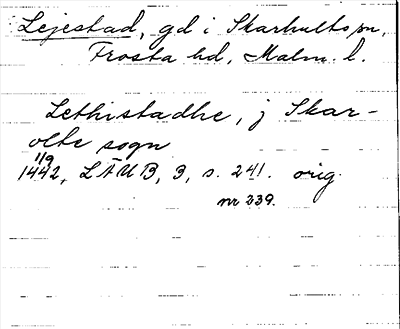 Lejestad, gd i Skarhults sn,
Frosta hd, Malm. l.
Lethistadhe, j Skar-
olte sogn
11/9
1442, LÄUB, 3, s. 241. orig.
nr 239.